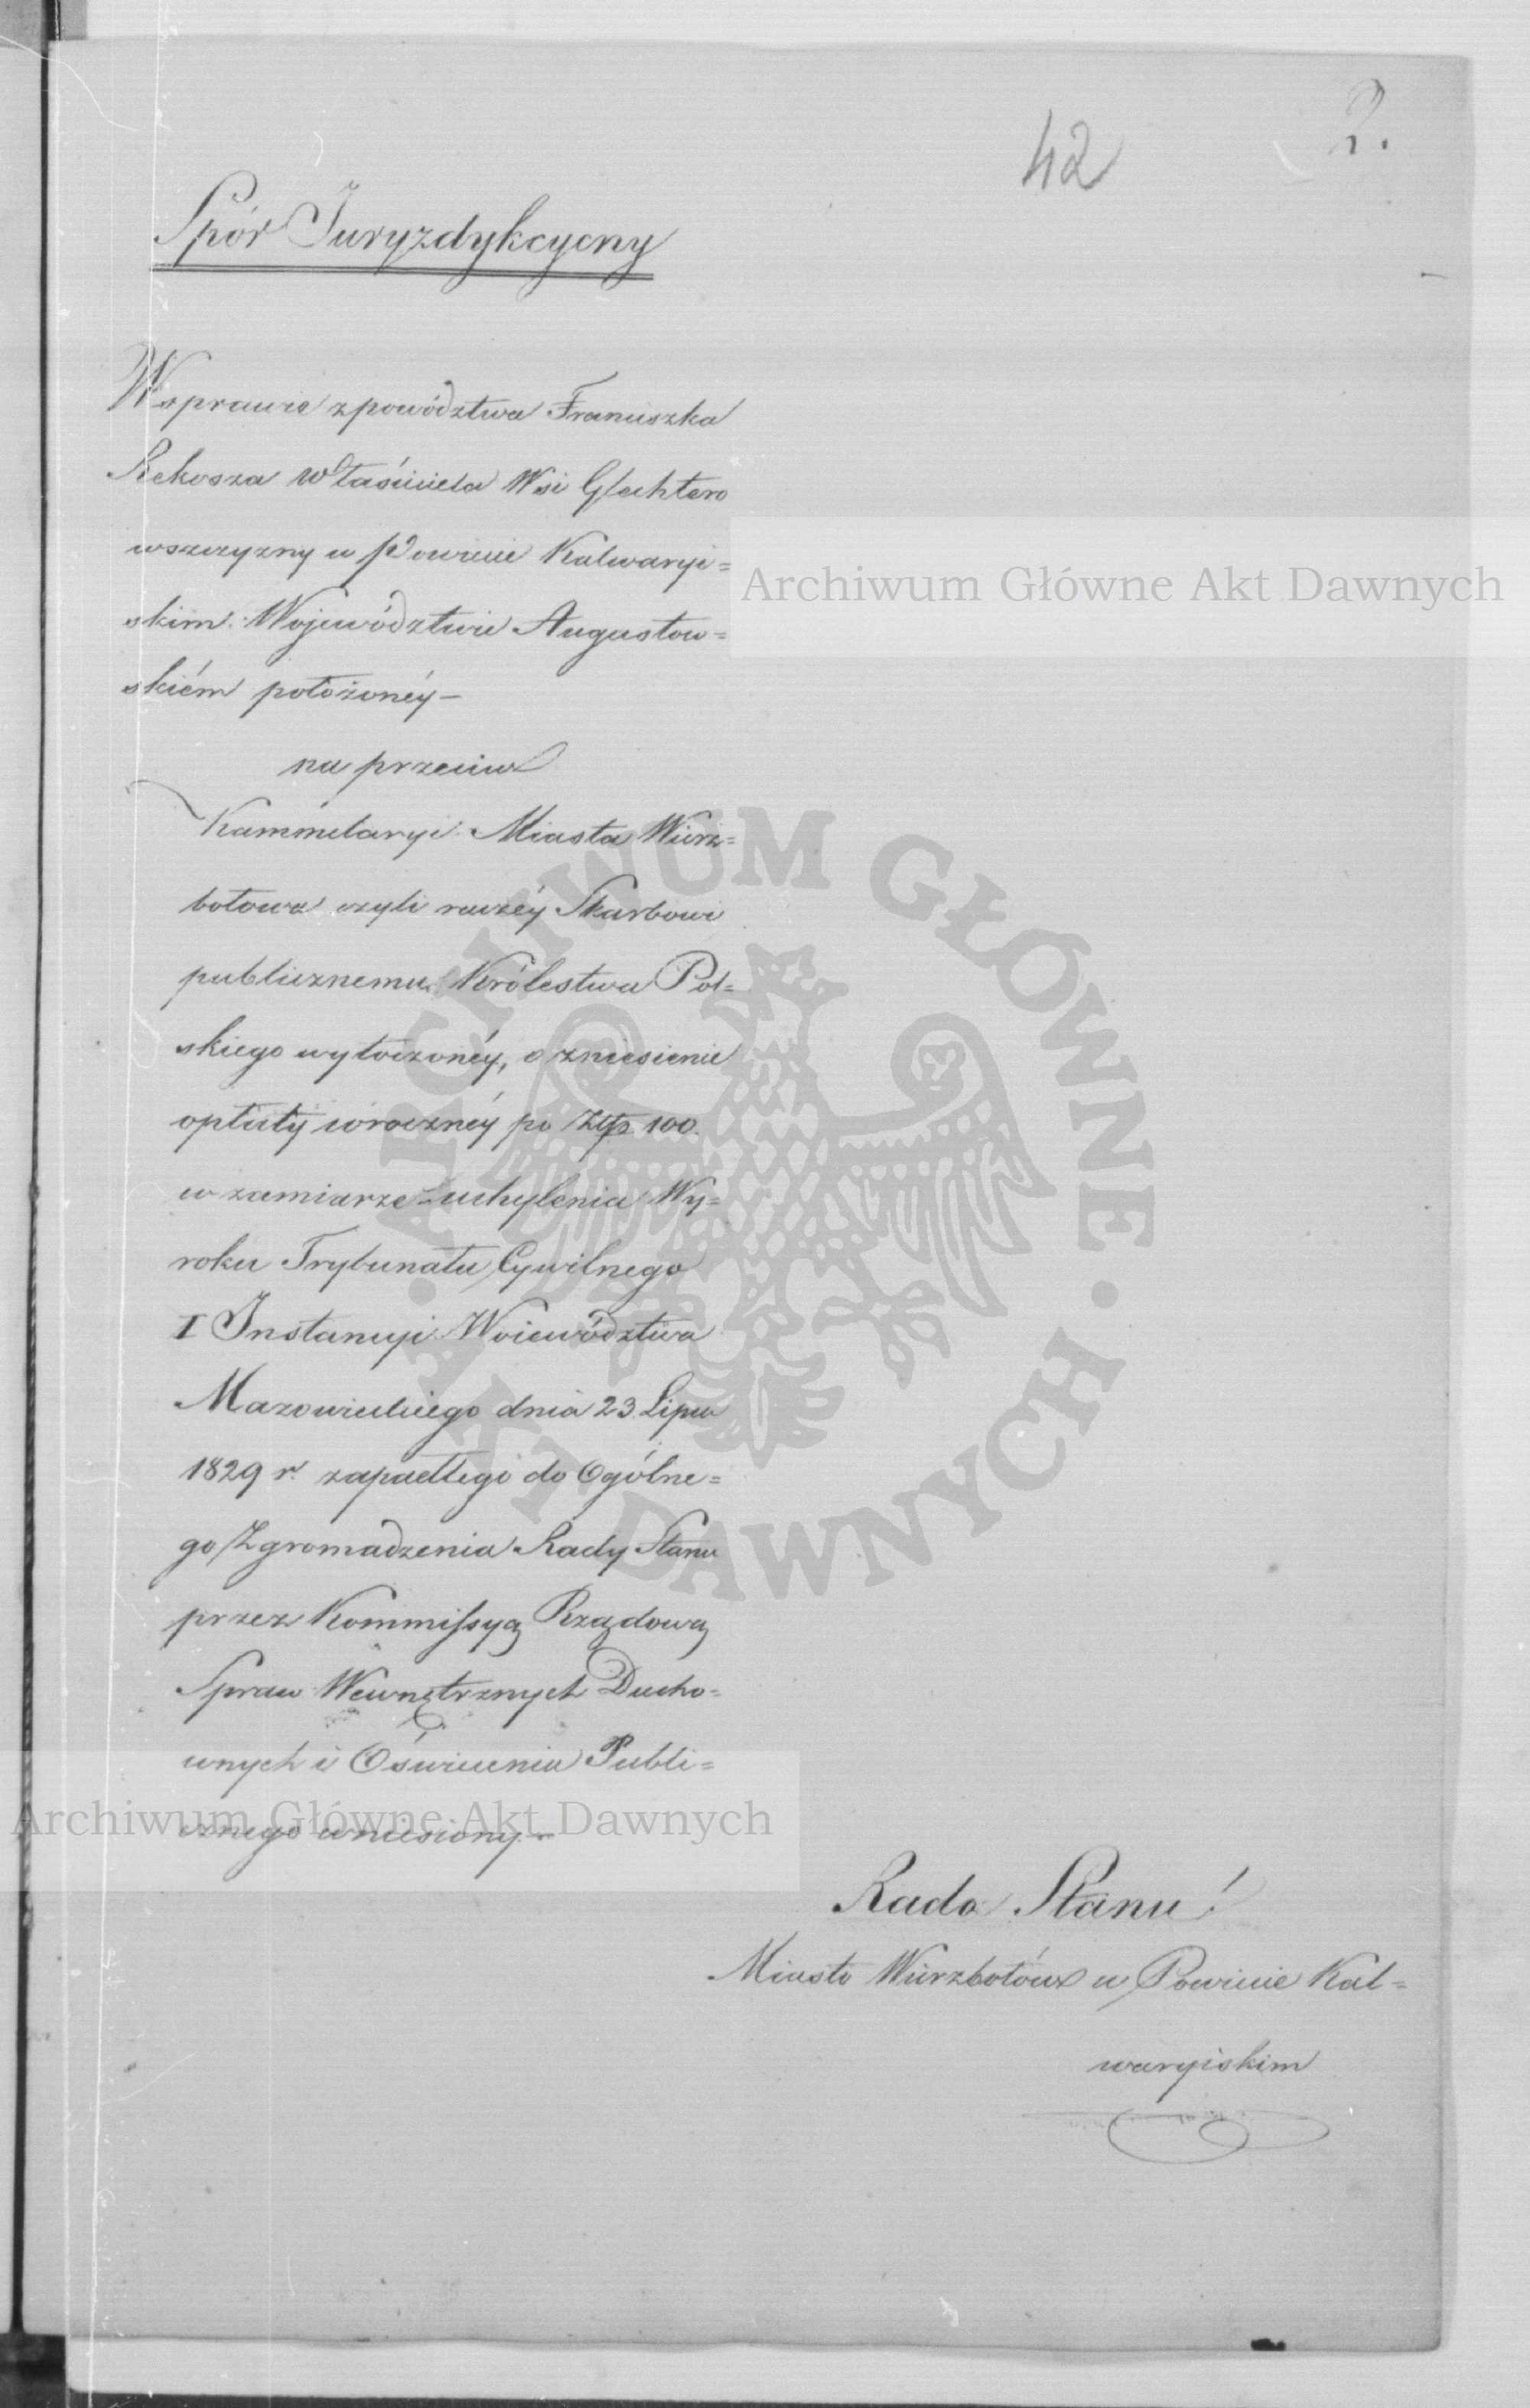 42 2.
Spór Juryzdykcyony
W sprawie z powództwa Franciszka
Rekosza Właściciela Wsi Glechtero
wszczyzny w Powiecie Kalwaryi=
skim Województwie Augustow=
skiém położonéy –
na przeciw
Kammelaryi Miasta Wierz=
bołowa czyli raczéy Skarbowi
publicznemu Królestwa Pol=
skiego wytoczonéy, o zniesienie
opłaty corocznéy po Złp 100.
w zamiarze uchylenia Wy=
roku Trybunału Cywilnego
I Instancyi Woiewództwa
Mazowieckiego dnia 23 Lipca
1829 r. zapadłego do Ogólne=
go Zgromadzenia Rady Stanu
przez Kommissyą Rządową
Spraw Wewnętrznych Ducho=
wnych i Oświecenia Publi=
cznego wniesiony –
Rado Stanu!
Miasto Wierzbołów w Powiecie Kal=
waryiskim
Archiwum Główne Akt Dawnych
ARCHIWUM GŁÓWNE · AKT DAWNYCH ·
Archiwum Główne Akt Dawnych